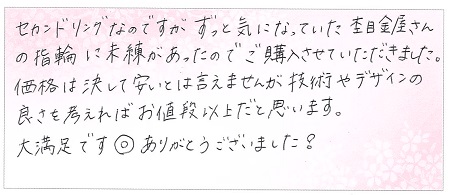 セカンドリングなのですが ずっと気になっていた 杢目金屋さん
の指輪に未練があったのでご購入させていただきました。
価格は決して安いとは言えませんが 技術やデザインの
良さを考えればお値段以上だと思います。
大満足です◎ ありがとうございました！